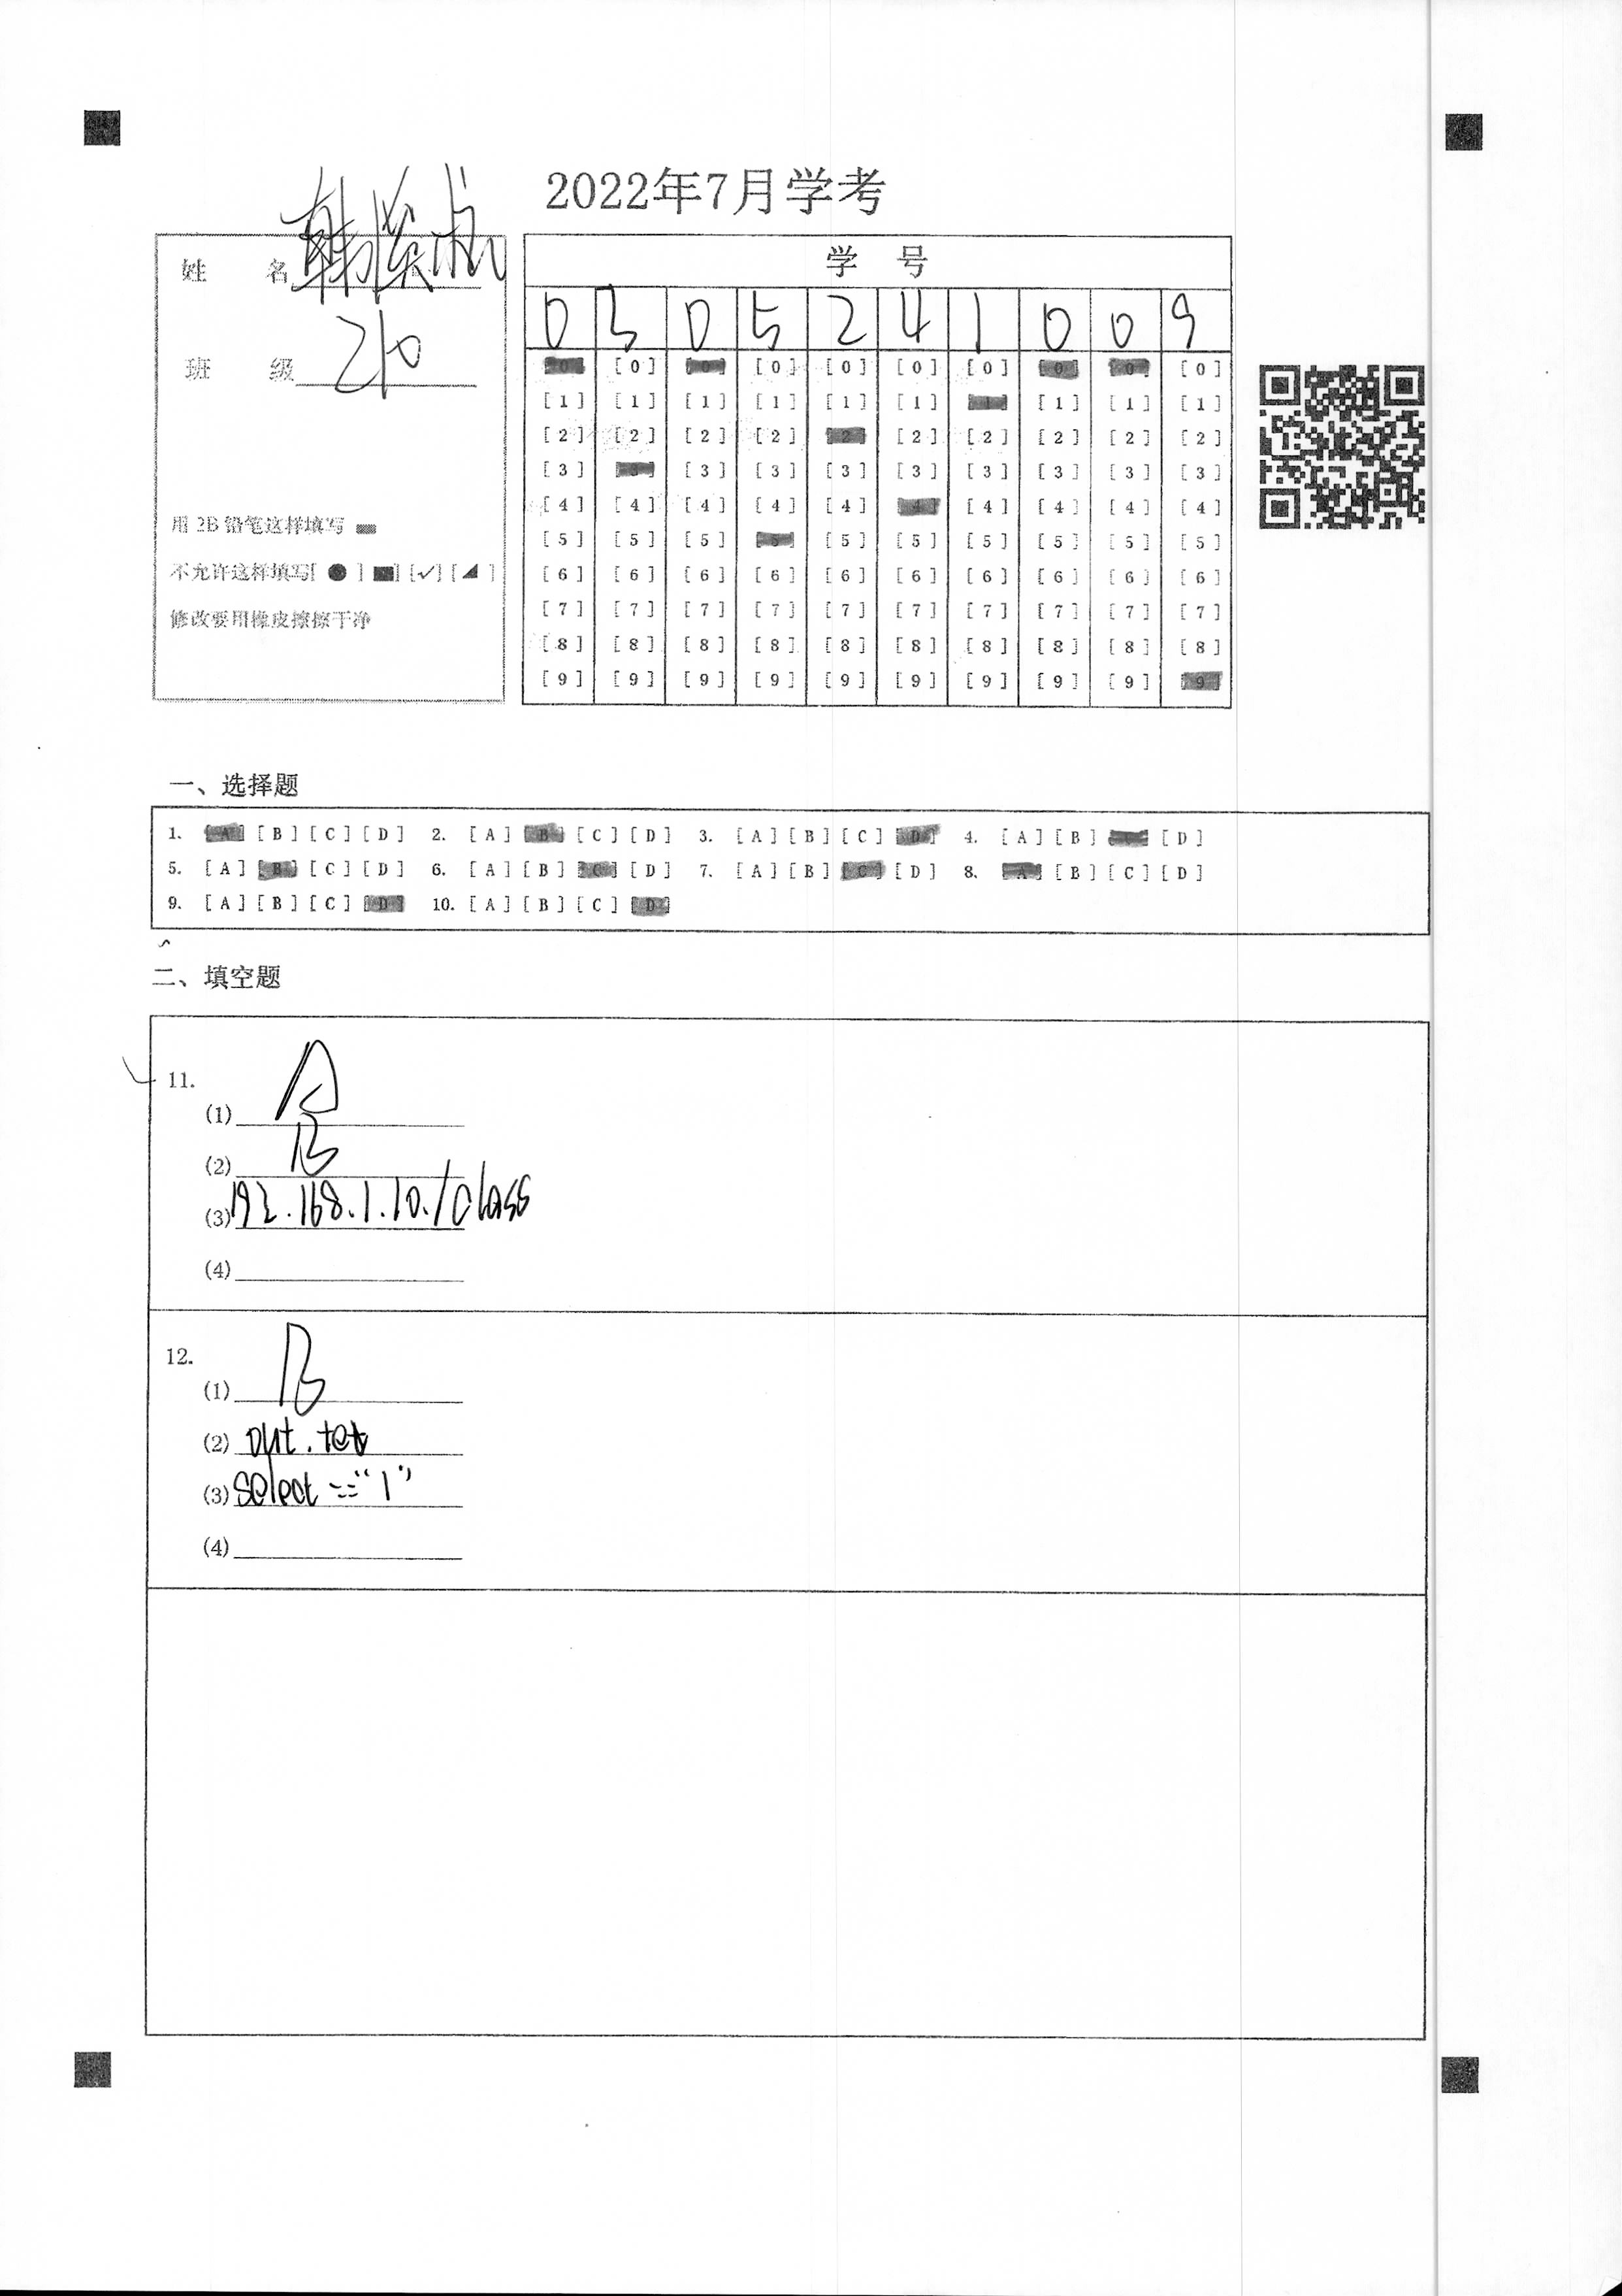 2022年7月学考
姓 名 韩
班 级 210
用 2B 铅笔这样填写
不允许这样填写[ ● ] [■] [✓] [◢ ]
修改要用橡皮擦擦干净
学 号
0 3 0 5 2 4 1 0 0 9
[0] [0] [0] [0] [0] [0] [0] [0] [0] [0]
[1] [1] [1] [1] [1] [1] [1] [1] [1] [1]
[2] [2] [2] [2] [2] [2] [2] [2] [2] [2]
[3] [3] [3] [3] [3] [3] [3] [3] [3] [3]
[4] [4] [4] [4] [4] [4] [4] [4] [4] [4]
[5] [5] [5] [5] [5] [5] [5] [5] [5] [5]
[6] [6] [6] [6] [6] [6] [6] [6] [6] [6]
[7] [7] [7] [7] [7] [7] [7] [7] [7] [7]
[8] [8] [8] [8] [8] [8] [8] [8] [8] [8]
[9] [9] [9] [9] [9] [9] [9] [9] [9] [9]
一、选择题
1. [A] [B] [C] [D] 2. [A] [B] [C] [D] 3. [A] [B] [C] [D] 4. [A] [B] [C] [D]
5. [A] [B] [C] [D] 6. [A] [B] [C] [D] 7. [A] [B] [C] [D] 8. [A] [B] [C] [D]
9. [A] [B] [C] [D] 10. [A] [B] [C] [D]
二、填空题
11.
(1) A
(2) B
(3) 192.168.1.10./class
(4)
12.
(1) B
(2) out.tet
(3) select =="1"
(4)